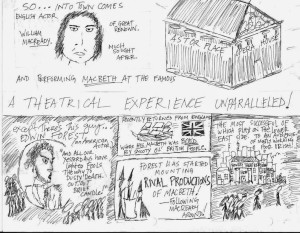 SO... INTO TOWN COMES
ENGLISH ACTOR
WILLIAM
MACREADY.
OF GREAT
RENOWN.
MUCH
SOUGHT
AFTER.
ASTOR PLACE
HOUSE
AND PERFORMING MACBETH AT THE FAMOUS
A THEATRICAL EXPERIENCE UNPARALLELED!
EXCEPT THERE'S THIS GUY...
EDWIN FOREST
AN AMERICAN
ACTOR.
"AND ALL OUR
YESTERDAYS HAVE
LIGHTED FOOLS
THE WAY TO
DUSTY DEATH.
OUT, OUT
BRIEF
CANDLE!"
RECENTLY RETURNED FROM ENGLAND
WHERE HIS MACBETH WAS BOOED
BY SNOOTY OL' BRITISH PEOPLE.
FOREST HAS STARTED
MOUNTING
RIVAL PRODUCTIONS
OF MACBETH!
FOLLOWING
MACREADY
AROUND.
THE MOST SUCCESSFUL OF
WHICH PLAY ON THE LOWER
EAST SIDE. TO AN AUDIENCE
OF